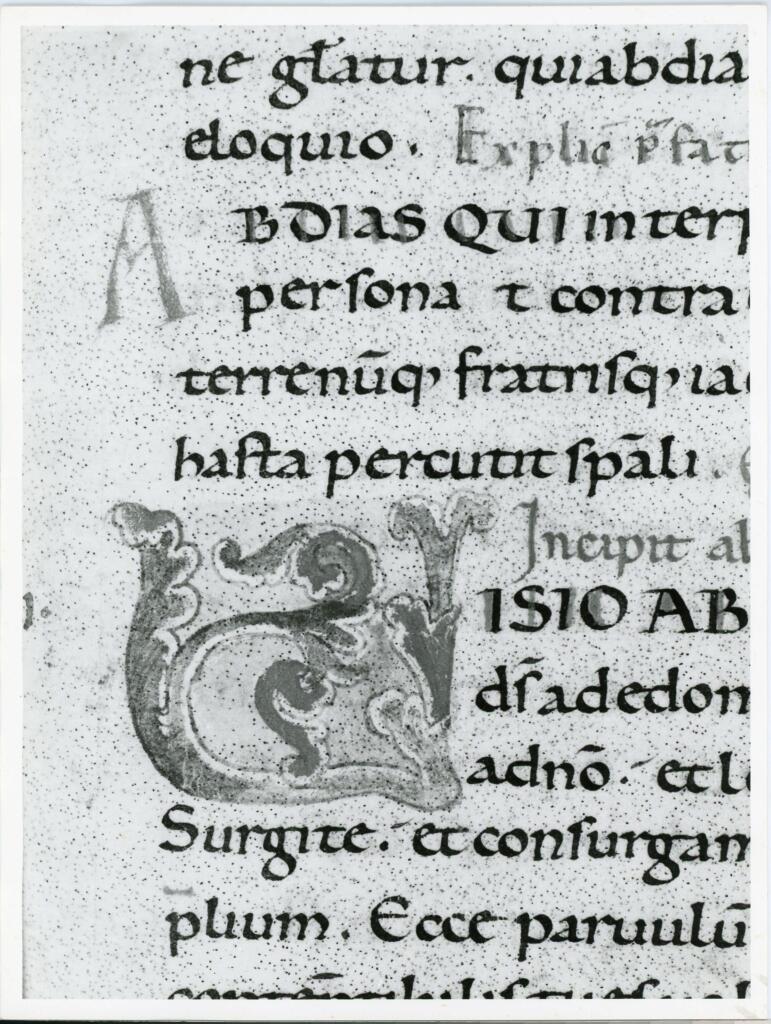 ne głatur. quiabdia
eloquio. Explic̄ p̄fat
ABDIAS QUI interp
persona t contra
terrenūq; fratrisq; ia
hasta percutit sp̄ali.
Incipit ab
VISIO AB
dſ̄ adedom
adnō. et l
Surgite. et consurgam
plium. Ecce paruulū